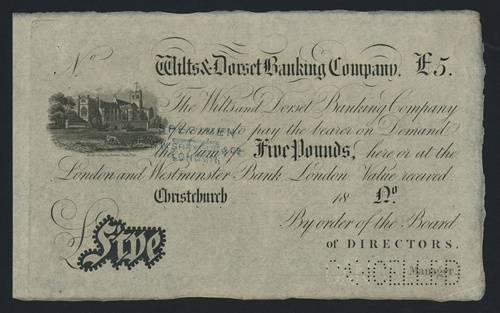 No
Wilts & Dorset Banking Company. £5.
The Wilts and Dorset Banking Company
promise to pay the bearer on Demand
the Sum of Five Pounds, here or at the
London and Westminster Bank London Value received.
Christchurch 18 No
By order of the Board
of DIRECTORS.
£Five
Manager
SPECIMEN
LONDON
CANCELLED